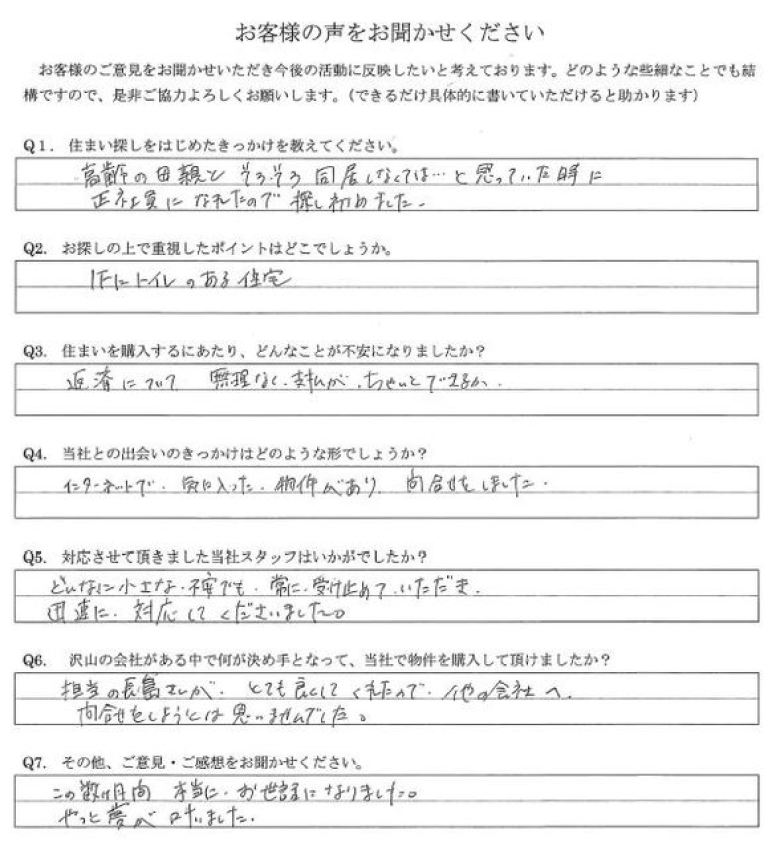 お客様の声をお聞かせください
お客様のご意見をお聞かせいただき今後の活動に反映したいと考えております。どのような些細なことでも結
構ですので、是非ご協力よろしくお願いします。（できるだけ具体的に書いていただけると助かります）
Q1. 住まい探しをはじめたきっかけを教えてください。
高齢の母親と そろそろ 同居しなくては…と思っていた時に
正社員に なれたので 探し初めました。
Q2. お探しの上で重視したポイントはどこでしょうか。
1Fにトイレのある住宅
Q3. 住まいを購入するにあたり、どんなことが不安になりましたか？
返済について 無理なく、支払が、ちゃんとできるか、
Q4. 当社との出会いのきっかけはどのような形でしょうか？
インターネットで、気に入った、物件があり、問合せをしました。
Q5. 対応させて頂きました当社スタッフはいかがでしたか？
どんなに小さな、不安でも、常に、受け止めて、いただき、
迅速に、対応して くださいました。
Q6. 沢山の会社がある中で何が決め手となって、当社で物件を購入して頂けましたか？
担当の長島さんが、とても良くして くれたので、他の会社へ、
問合せをしようとは思いませんでした。
Q7. その他、ご意見・ご感想をお聞かせください。
この数ヶ月間 本当に、お世話になりました。
やっと夢が叶いました。